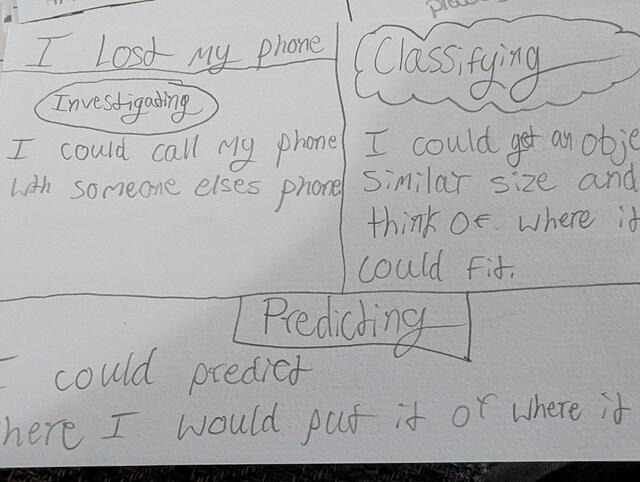 I Lost My phone
Investigating
I could call My phone
with someone elses phone
Classifying
I could get an obje
similar size and
think of where it
could fit.
Predicting
I could predict
here I would put it or where it